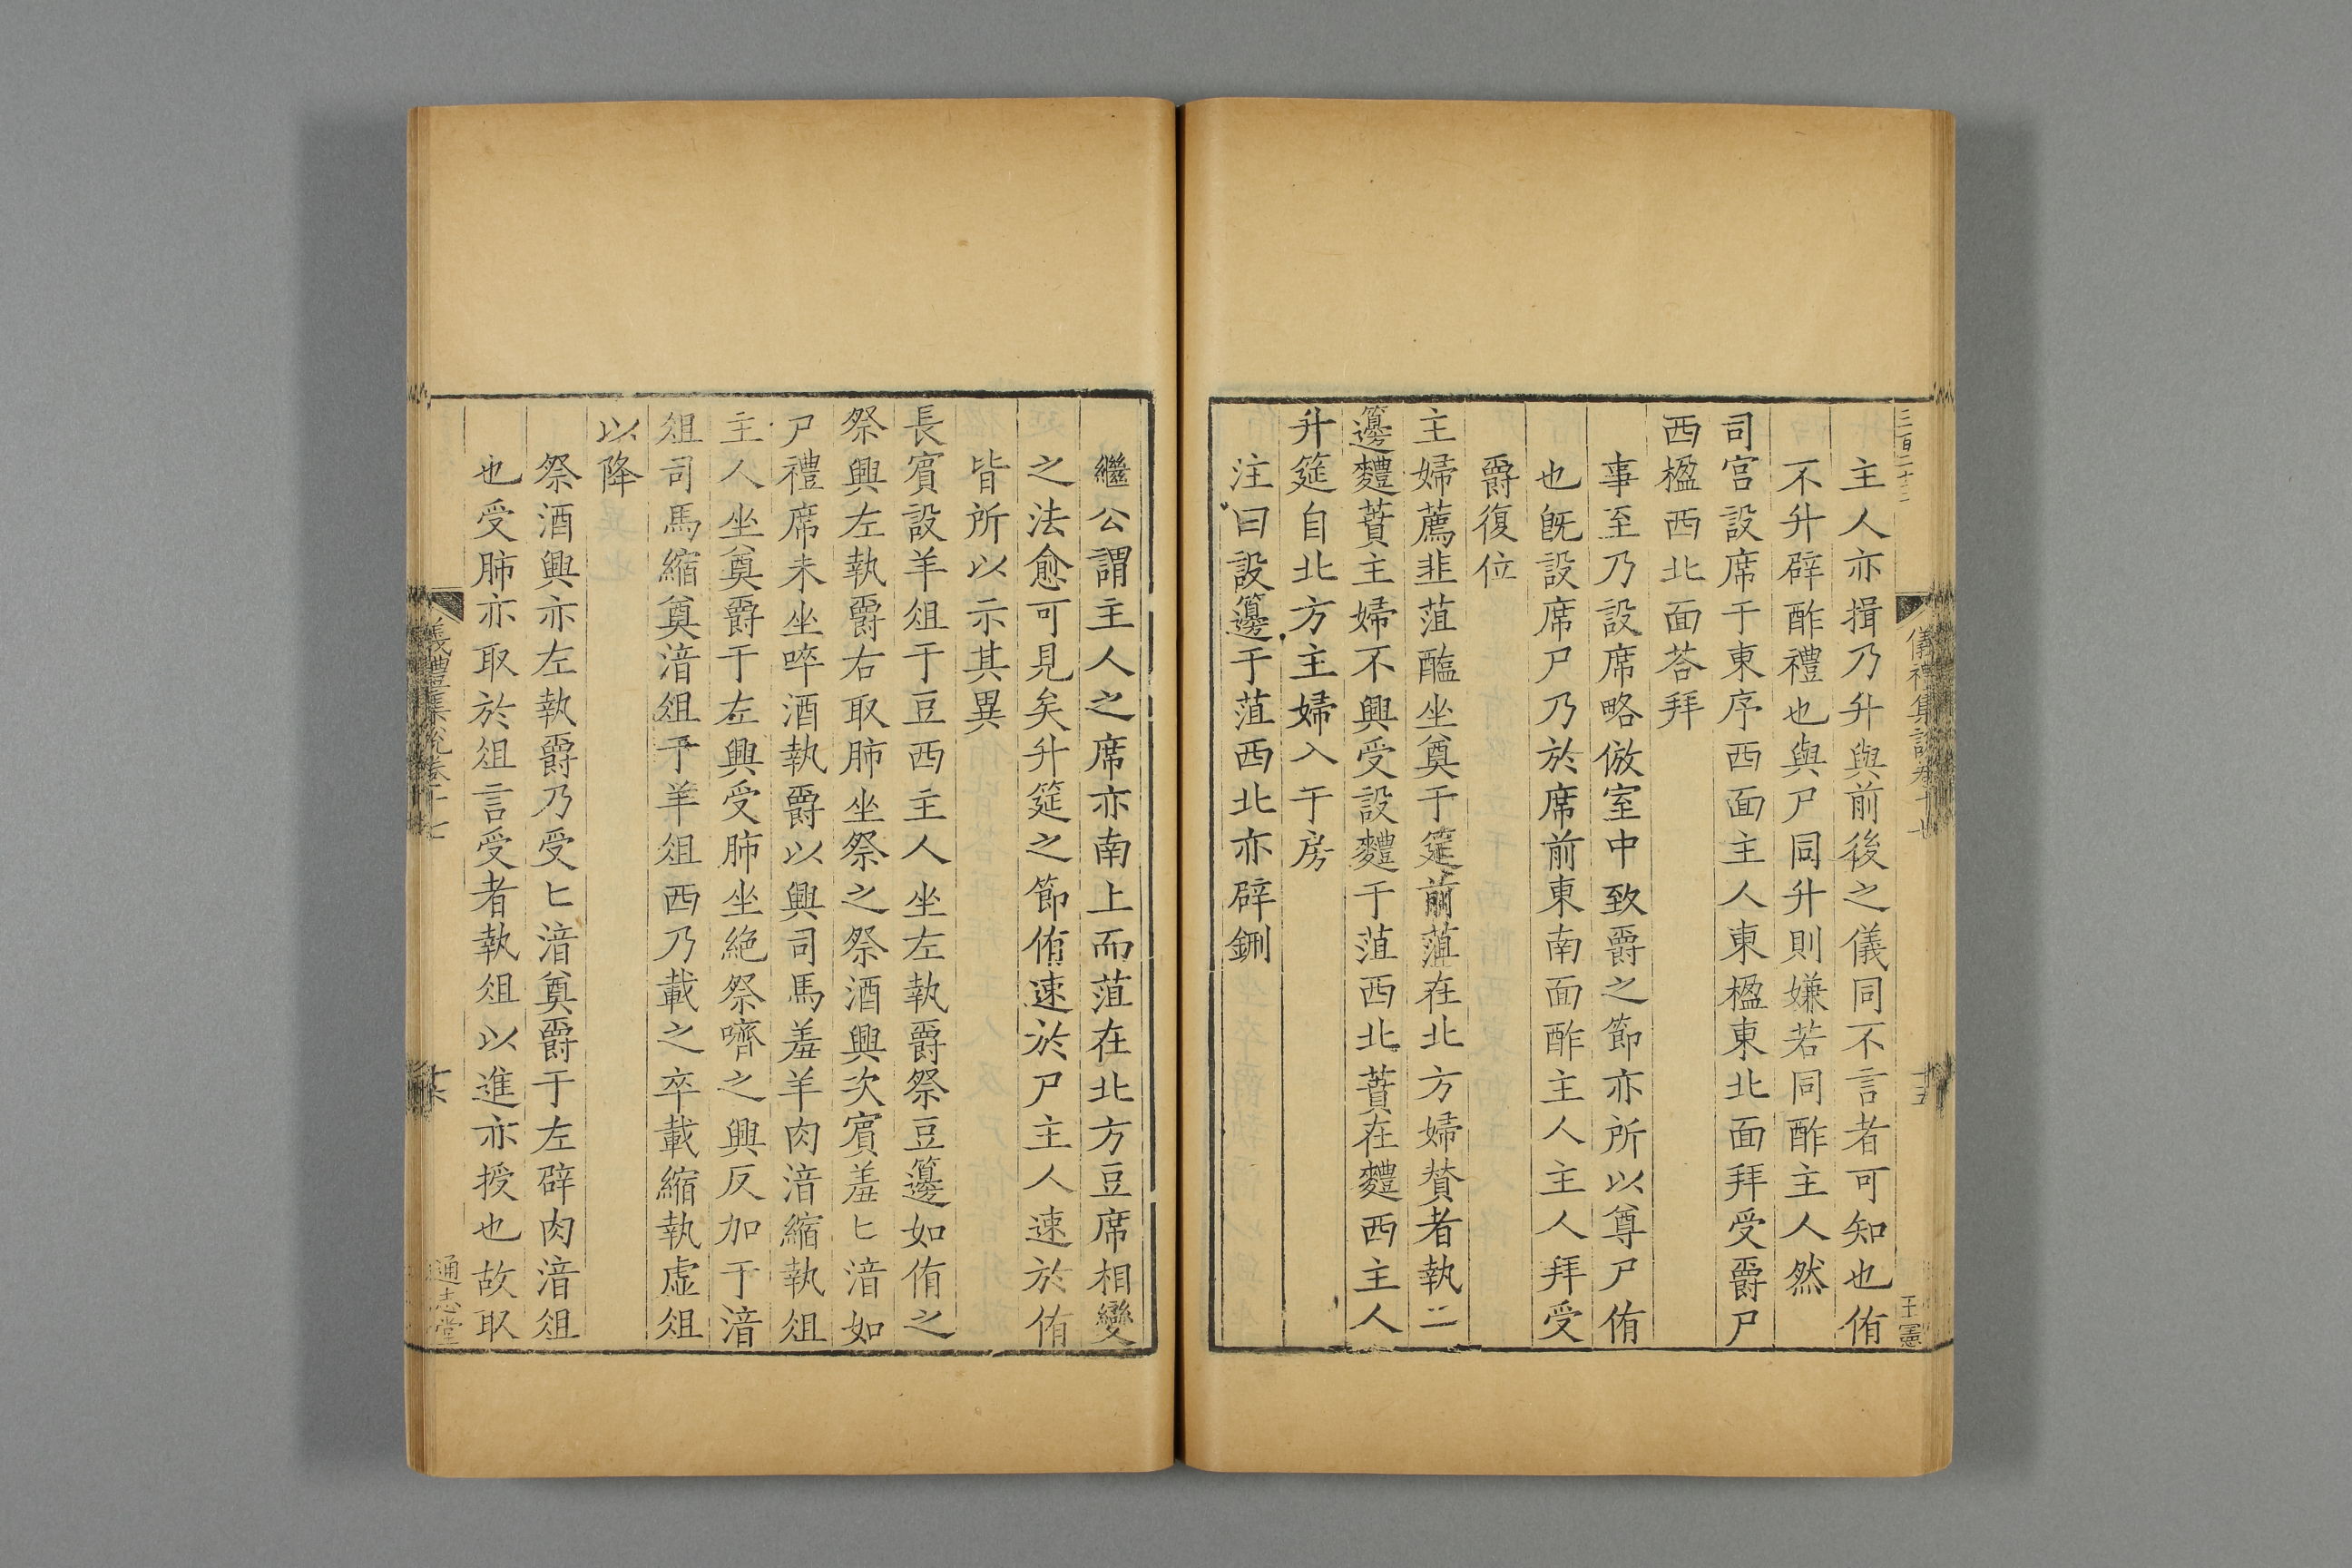 三百二十三
儀禮集說卷十七
十五
王憲
主人亦揖乃升與前後之儀同不言者可知也侑
不升辟酢禮也與尸同升則嫌若同酢主人然
司宮設席于東序西面主人東楹東北面拜受爵尸
西楹西北面荅拜
事至乃設席略倣室中致爵之節亦所以尊尸侑
也旣設席尸乃於席前東南面酢主人主人拜受
爵復位
主婦薦韭菹醢坐奠于筵前菹在北方婦贊者執二
籩麷蕡主婦不興受設麷于菹西北蕡在麷西主人
升筵自北方主婦入于房
注曰設籩于菹西北亦辟鉶
繼公謂主人之席亦南上而菹在北方豆席相變
之法愈可見矣升筵之節侑速於尸主人速於侑
皆所以示其異
長賓設羊俎于豆西主人坐左執爵祭豆籩如侑之
祭興左執爵右取肺坐祭之祭酒興次賓羞匕湆如
尸禮席末坐啐酒執爵以興司馬羞羊肉湆縮執俎
主人坐奠爵于左興受肺坐絶祭嚌之興反加于湆
俎司馬縮奠湆俎于羊俎西乃載之卒載縮執虛俎
以降
祭酒興亦左執爵乃受匕湆奠爵于左辟肉湆俎
也受肺亦取於俎言受者執俎以進亦授也故取
儀禮集說卷十七
十六
通志堂